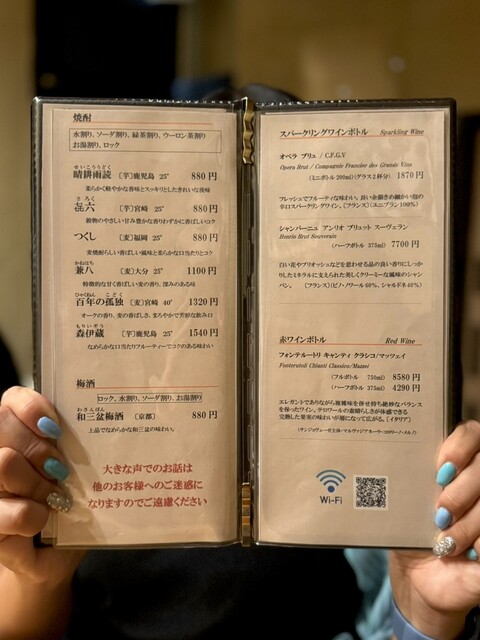 焼酎
水割り、ソーダ割り、緑茶割り、ウーロン茶割り
お湯割り、ロック
せいこううどく
晴耕雨読 〔芋〕鹿児島 25° 880 円
柔らかく軽やかな香味とスッキリとしたきれいな後味
きろく
㐂六 〔芋〕宮崎 25° 880 円
穀物のやさしい甘み豊かな香りわずかに香ばしいコク
つくし 〔麦〕福岡 25° 880 円
麦焼酎らしい香ばしい風味と柔らかな口当たりとコク
かねはち
兼八 〔麦〕大分 25° 1100 円
特徴的な甘く香ばしい麦の香り、深みのある味
ひゃくねん こどく
百年の孤独 〔麦〕宮崎 40° 1320 円
オークの香り、麦の香ばしさ、まろやかで芳醇な飲み口
もりいぞう
森伊蔵 〔芋〕鹿児島 25° 1540 円
なめらかな口当たりフルーティーでコクのある味わい
梅酒
ロック、水割り、ソーダ割り、お湯割り
わさんぼん
和三盆梅酒 〔京都〕 880 円
上品でなめらかな和三盆の味わい。
大きな声でのお話は
他のお客様へのご迷惑に
なりますのでご遠慮ください
スパークリングワインボトル Sparkling Wine
オペラ ブリュ / C.F.G.V
Opera Brut / Compagnie Francaise des Grands Vins
(ミニボトル 200ml)(グラス2杯分) 1870 円
フレッシュでフルーティな味わい。良い余韻きめ細かい泡の
辛口スパークリングワイン。〔フランス〕(ユニブラン 100%)
シャンパーニュ アンリオ ブリュット スーヴェラン
Henrio Brut Souverain
(ハーフボトル 375ml) 7700 円
白い花やブリオッシュなどを思わせる品の良い香りにしっ
かりしたミネラルに支えられた美しくクリーミーな風味のシャン
パン。 〔フランス〕(ピノ・ノワール 60%、シャルドネ 40%)
赤ワインボトル Red Wine
フォンテルートリ キャンティ クラシコ/マッツェイ
Fonterutoli Chianti Classico/Mazzei
(フルボトル 750ml) 8580 円
(ハーフボトル 375ml) 4290 円
エレガントでありながら複雑味を併せ持ち絶妙なバランス
を保ったワイン。テロワールの素晴らしさが体感できる
完熟した果実の味わいが層になって広がる。〔イタリア〕
Wi-Fi